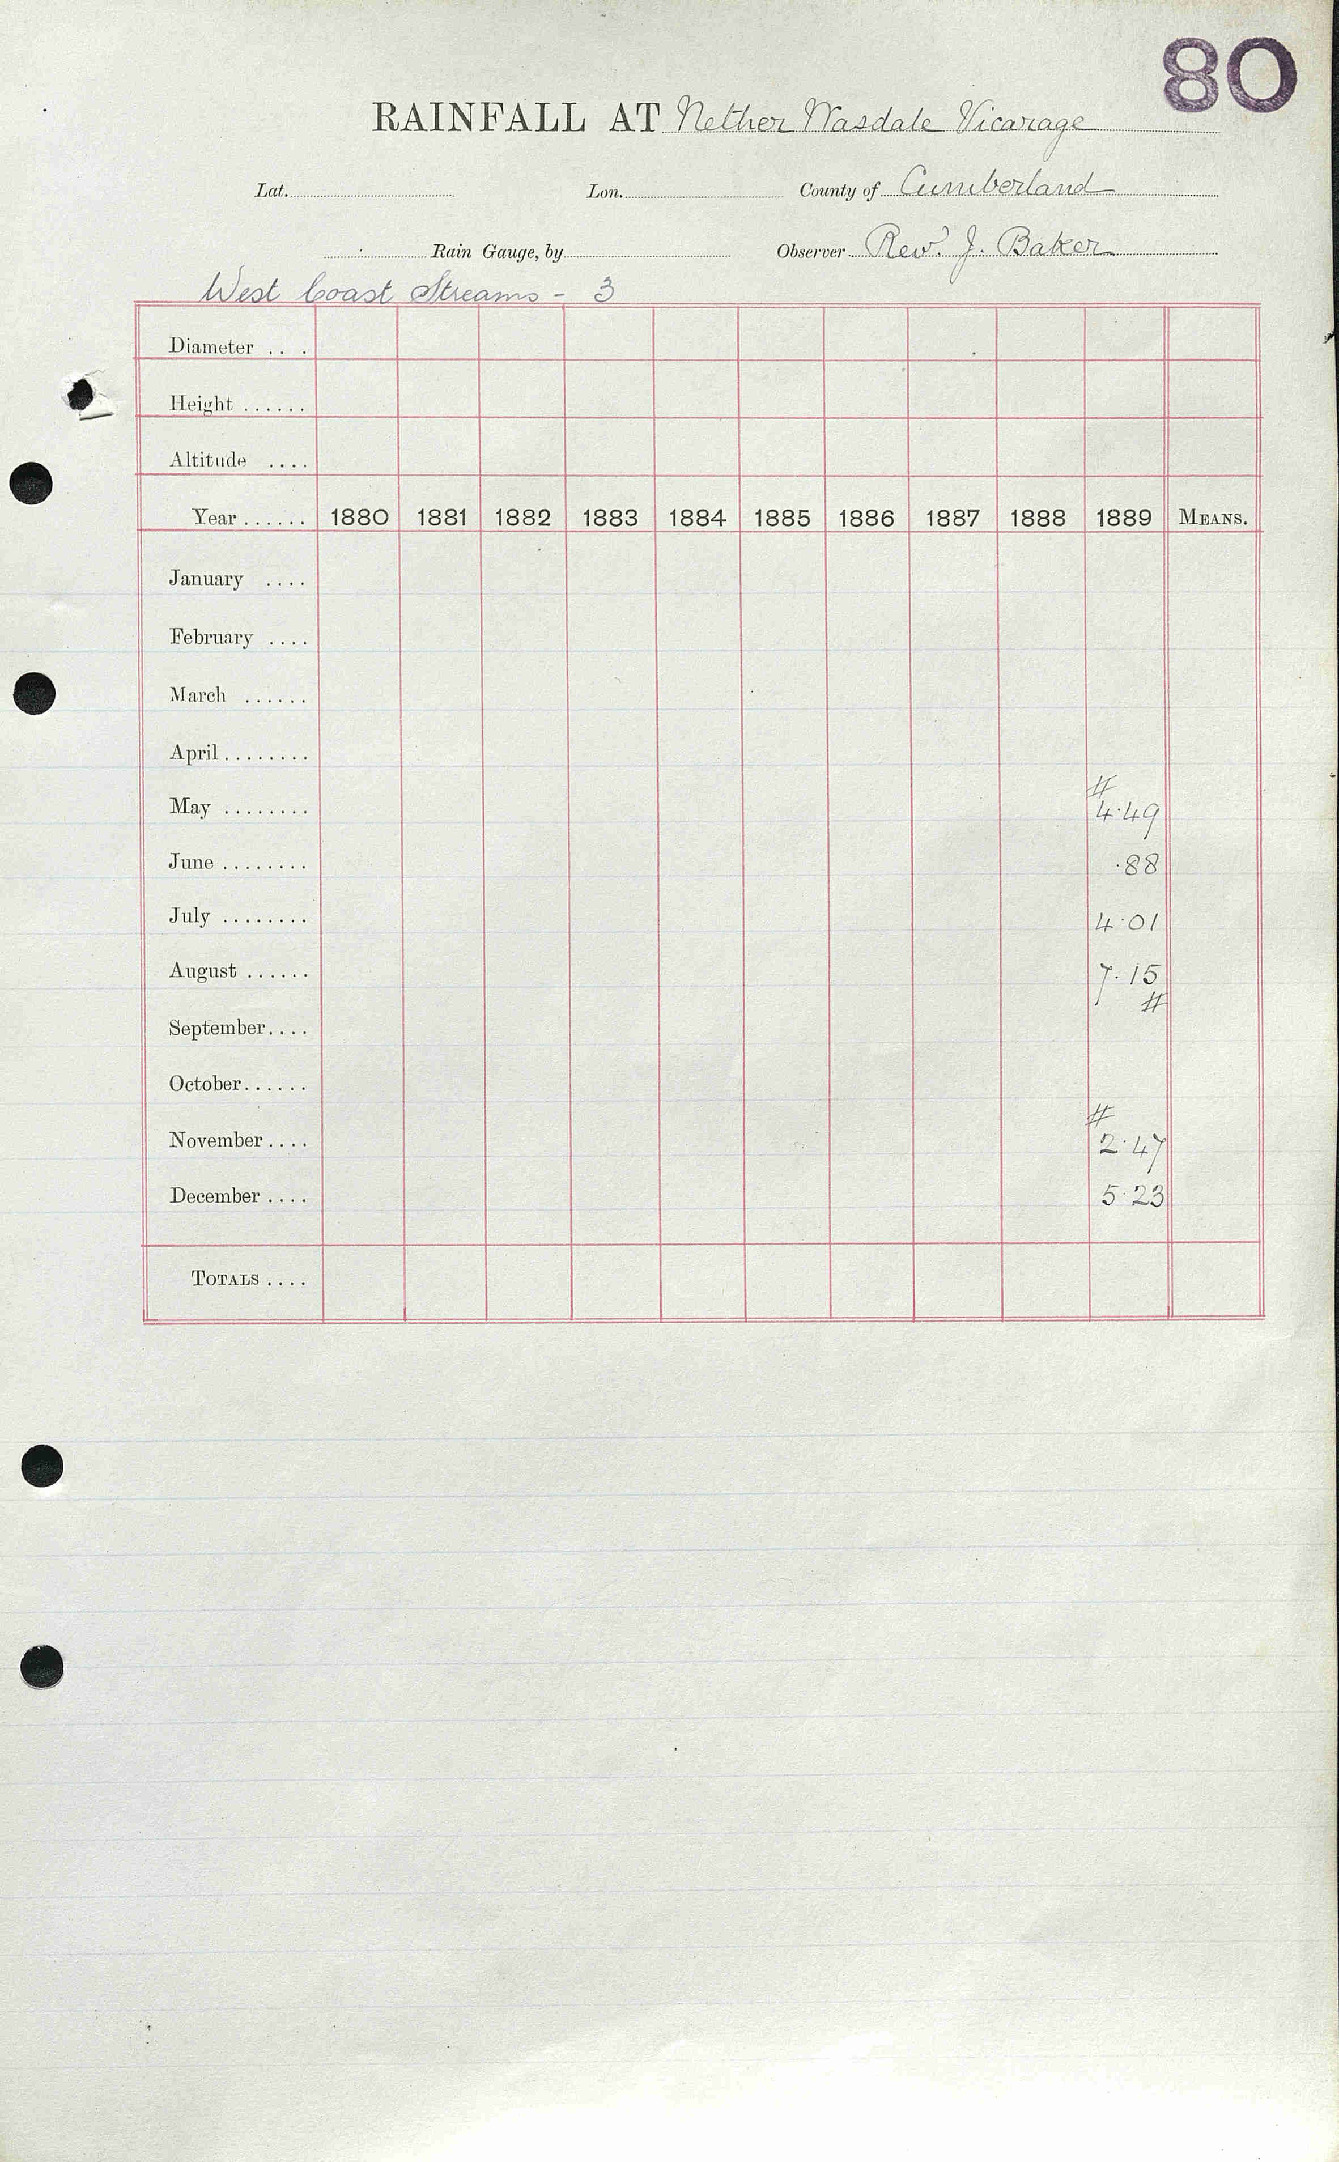 80
RAINFALL AT Nether Wasdale Vicarage
Lat. Lon. County of Cumberland
Rain Gauge, by Observer Rev. J. Baker
West Coast Streams - 3
Diameter . . .
Height . . . . . .
Altitude . . . .
Year . . . . . . 1880 1881 1882 1883 1884 1885 1886 1887 1888 1889 MEANS.
January . . . .
February . . . .
March . . . . . .
April . . . . . . . .
#
May . . . . . . . . 4·49
June . . . . . . . . ·88
July . . . . . . . . 4·01
August . . . . . . 7·15
#
September. . . .
October. . . . . .
#
November . . . . 2·47
December . . . . 5·23
TOTALS . . . .